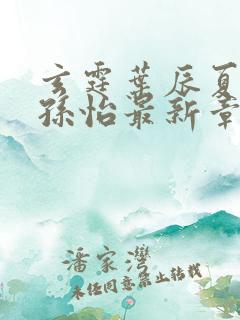 玄霆叶辰夏
孙怡最新章
潘家湾
未经同意禁止转载